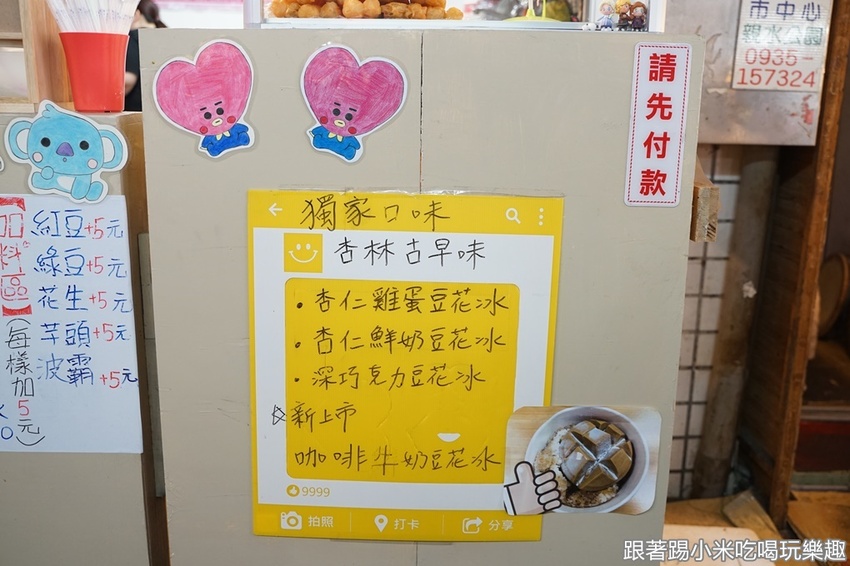 市中心
親水公園
0935-
157324
請先付款
獨家口味
杏林古早味
• 杏仁雞蛋豆花冰
• 杏仁鮮奶豆花冰
• 深巧克力豆花冰
新上市
咖啡牛奶豆花冰
9999
拍照
打卡
分享
【加料區】
紅豆+5元
綠豆+5元
花生+5元
芋頭+5元
波霸+5元
(每樣加5元)
跟著踢小米吃喝玩樂趣